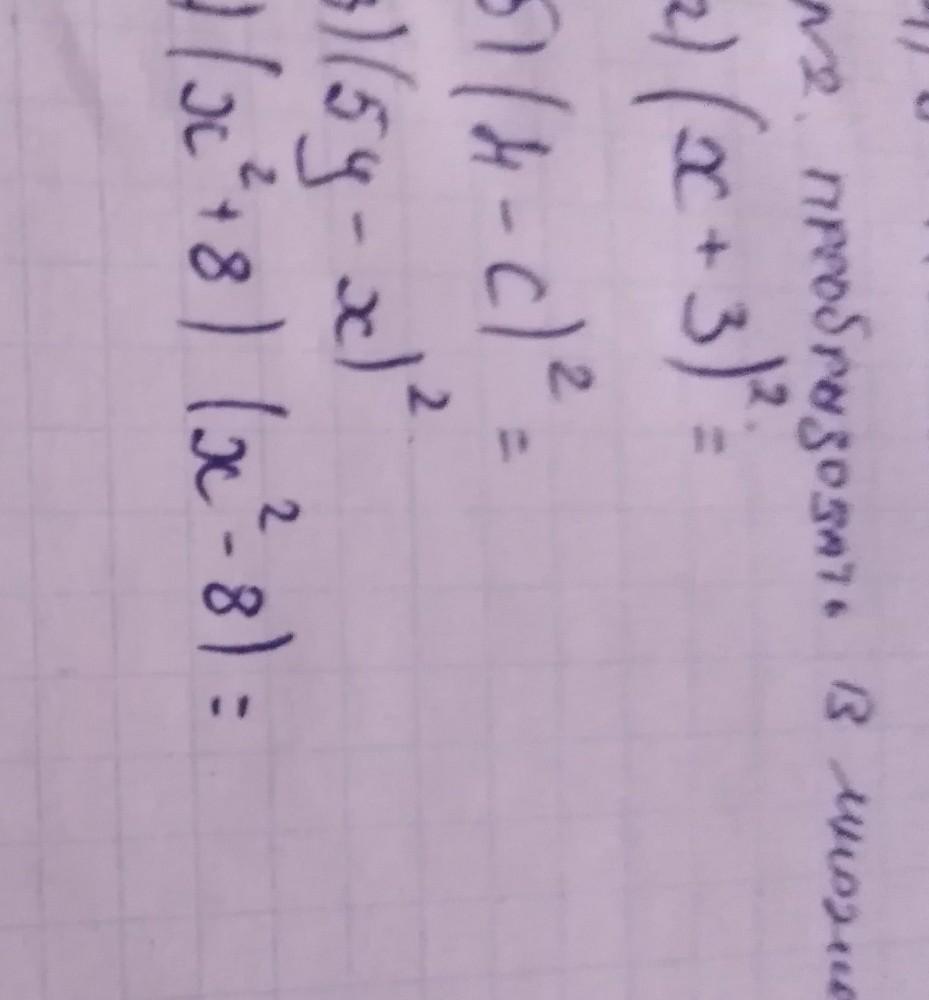 №2. преобразовать в многочл
а) (x + 3)² =
б) (4 - c)² =
в) (5y - x)²
) (x² + 8) (x² - 8) =